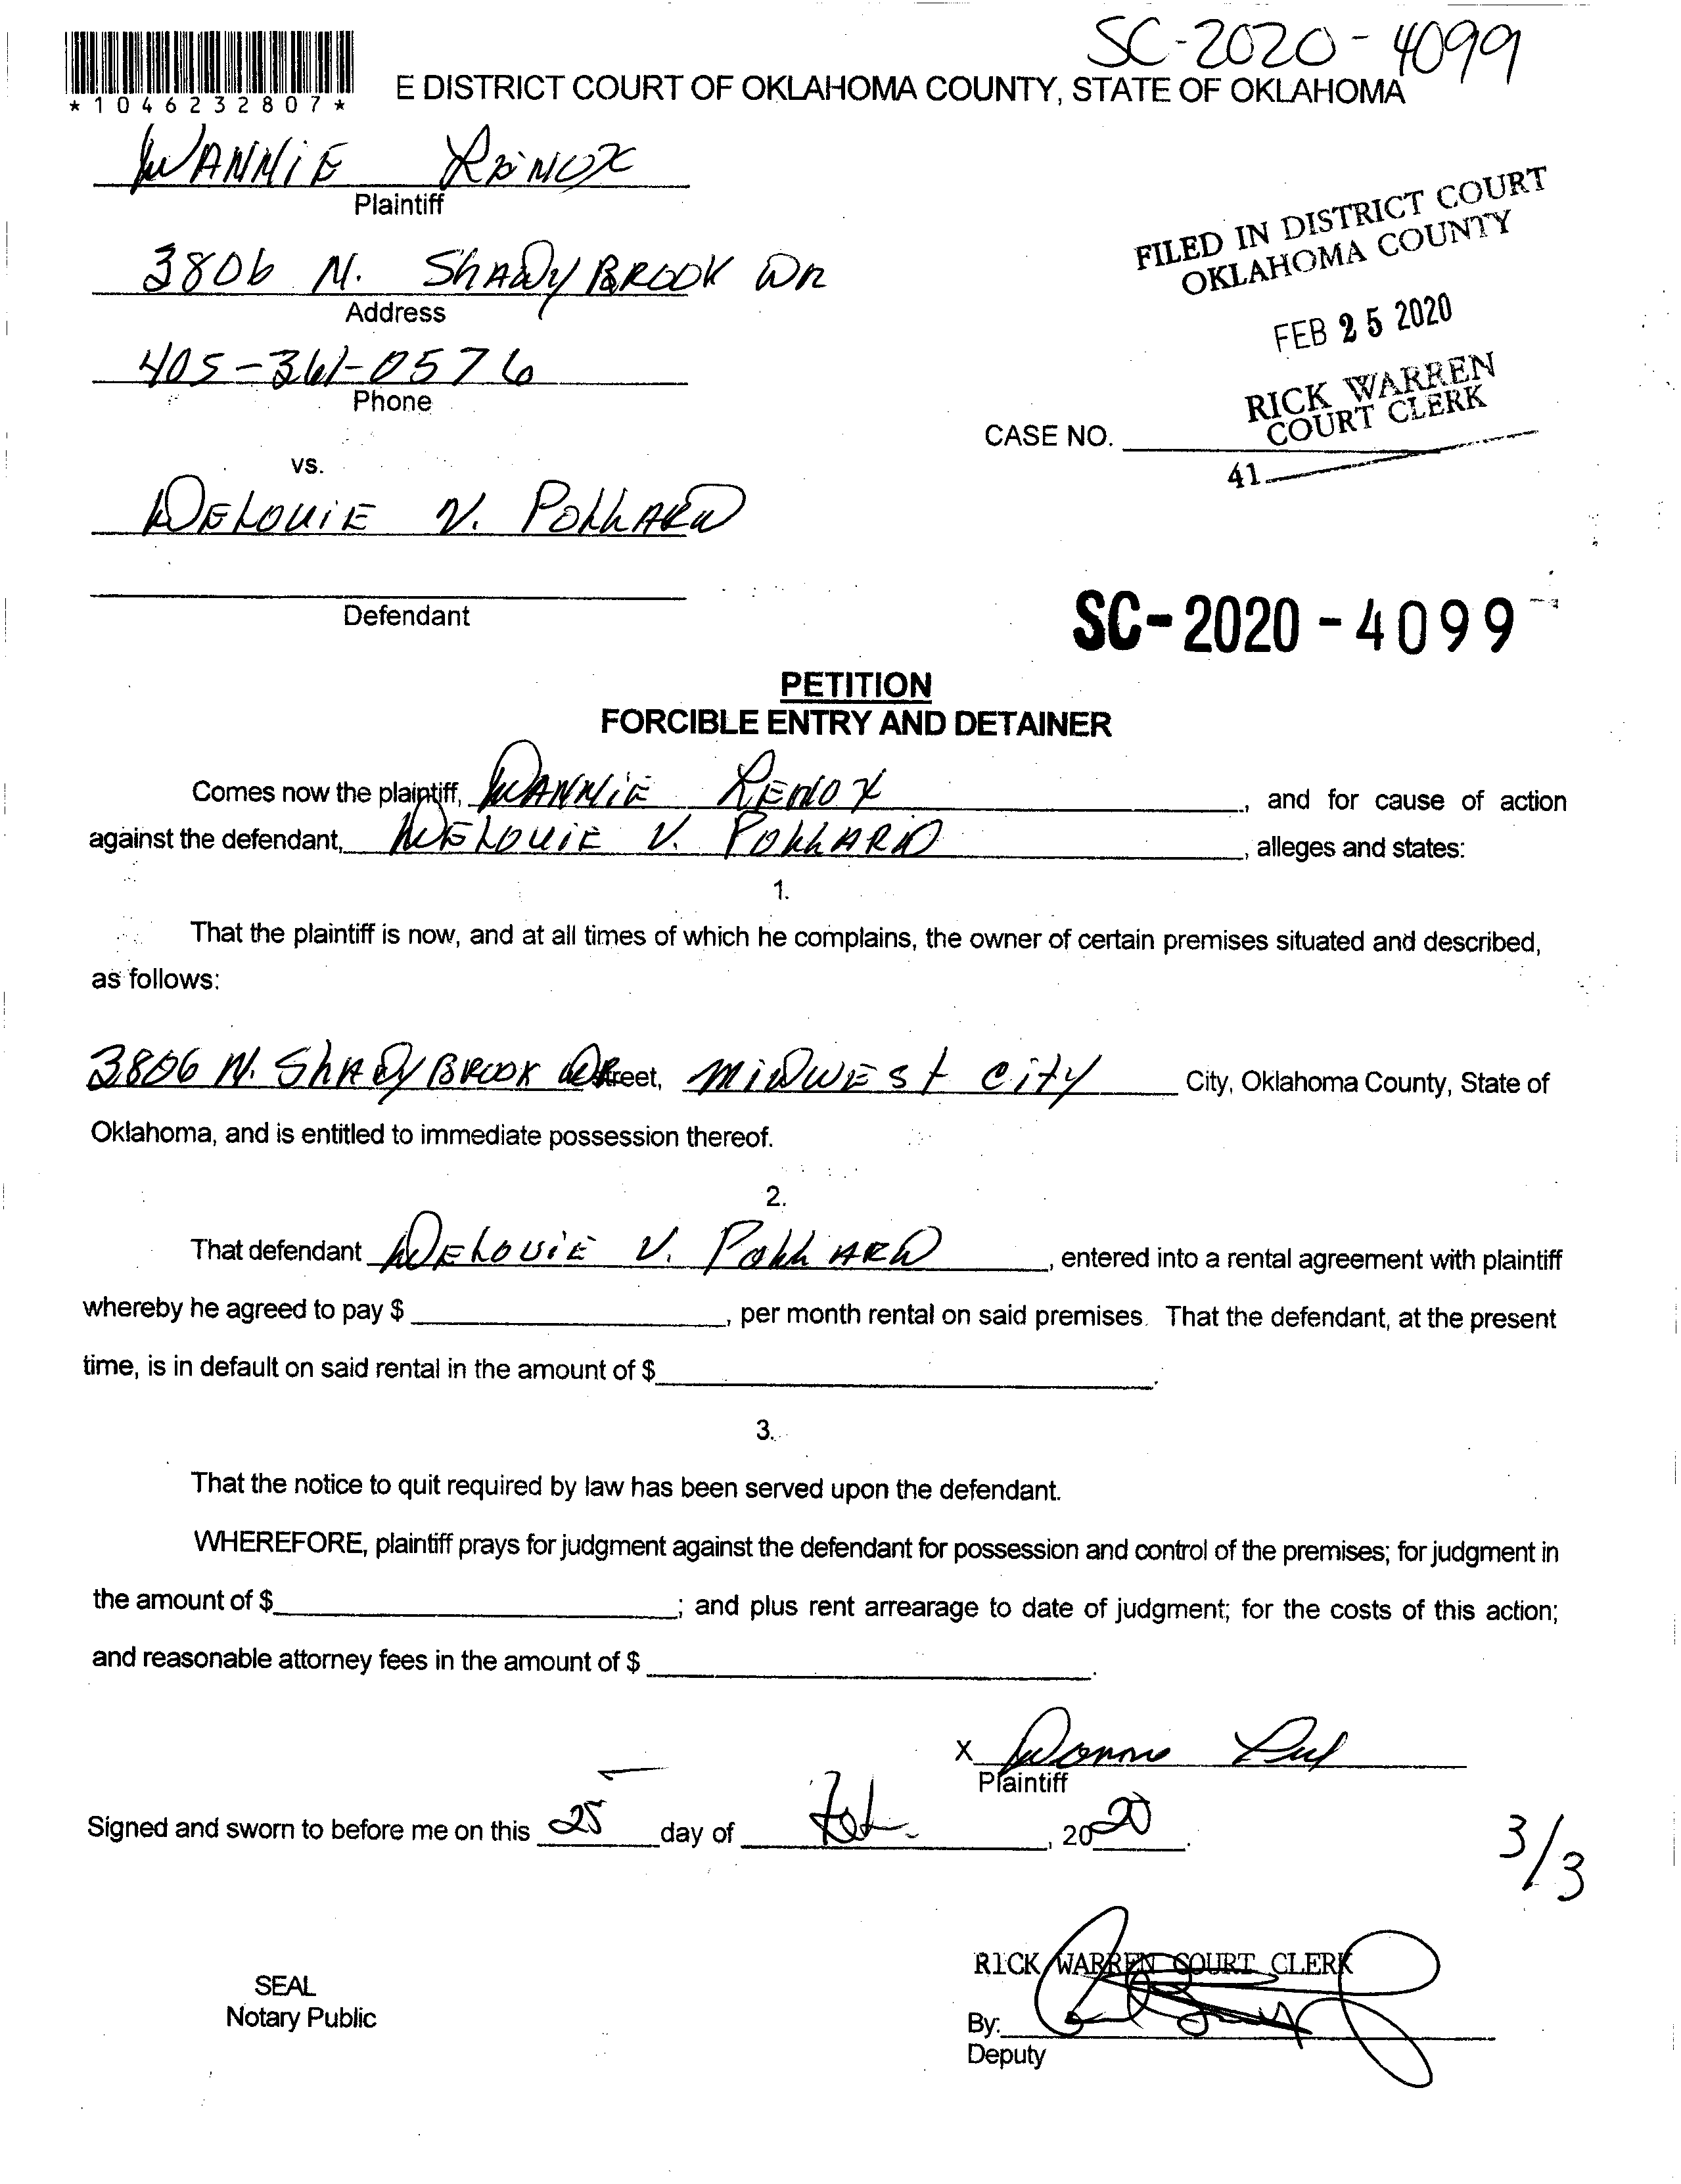 SC-2020-4099
*1046232807*
E DISTRICT COURT OF OKLAHOMA COUNTY, STATE OF OKLAHOMA
DANNIE LENOX
Plaintiff
3806 N. ShADyBROOK DR
Address
405-361-0576
Phone
FILED IN DISTRICT COURT
OKLAHOMA COUNTY
FEB 25 2020
RICK WARREN
COURT CLERK
CASE NO.
41
vs.
DELOUIE V. POLLARD
Defendant
SC-2020-4099
PETITION
FORCIBLE ENTRY AND DETAINER
Comes now the plaintiff, DANNIE LENOX, and for cause of action
against the defendant, DELOUIE V. POLLARD, alleges and states:
1.
That the plaintiff is now, and at all times of which he complains, the owner of certain premises situated and described,
as follows:
3806 N. ShADyBROOK DR Street, MIDWEST City City, Oklahoma County, State of
Oklahoma, and is entitled to immediate possession thereof.
2.
That defendant DELOUIE V. POLLARD, entered into a rental agreement with plaintiff
whereby he agreed to pay $, per month rental on said premises. That the defendant, at the present
time, is in default on said rental in the amount of $.
3.
That the notice to quit required by law has been served upon the defendant.
WHEREFORE, plaintiff prays for judgment against the defendant for possession and control of the premises; for judgment in
the amount of $; and plus rent arrearage to date of judgment; for the costs of this action;
and reasonable attorney fees in the amount of $.
X
Plaintiff
Signed and sworn to before me on this 25 day of Feb., 2020.
3/3
RICK WARREN COURT CLERK
SEAL
Notary Public
By:
Deputy